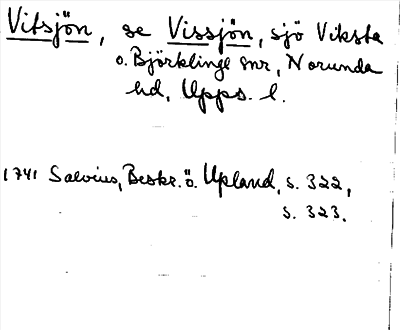 Vitsjön, se Vissjön, sjö Viksta
o. Björklinge snr, Norunda
hd, Upps. l.
1741 Salvius, Beskr. ö. Upland, s. 322,
s. 323.